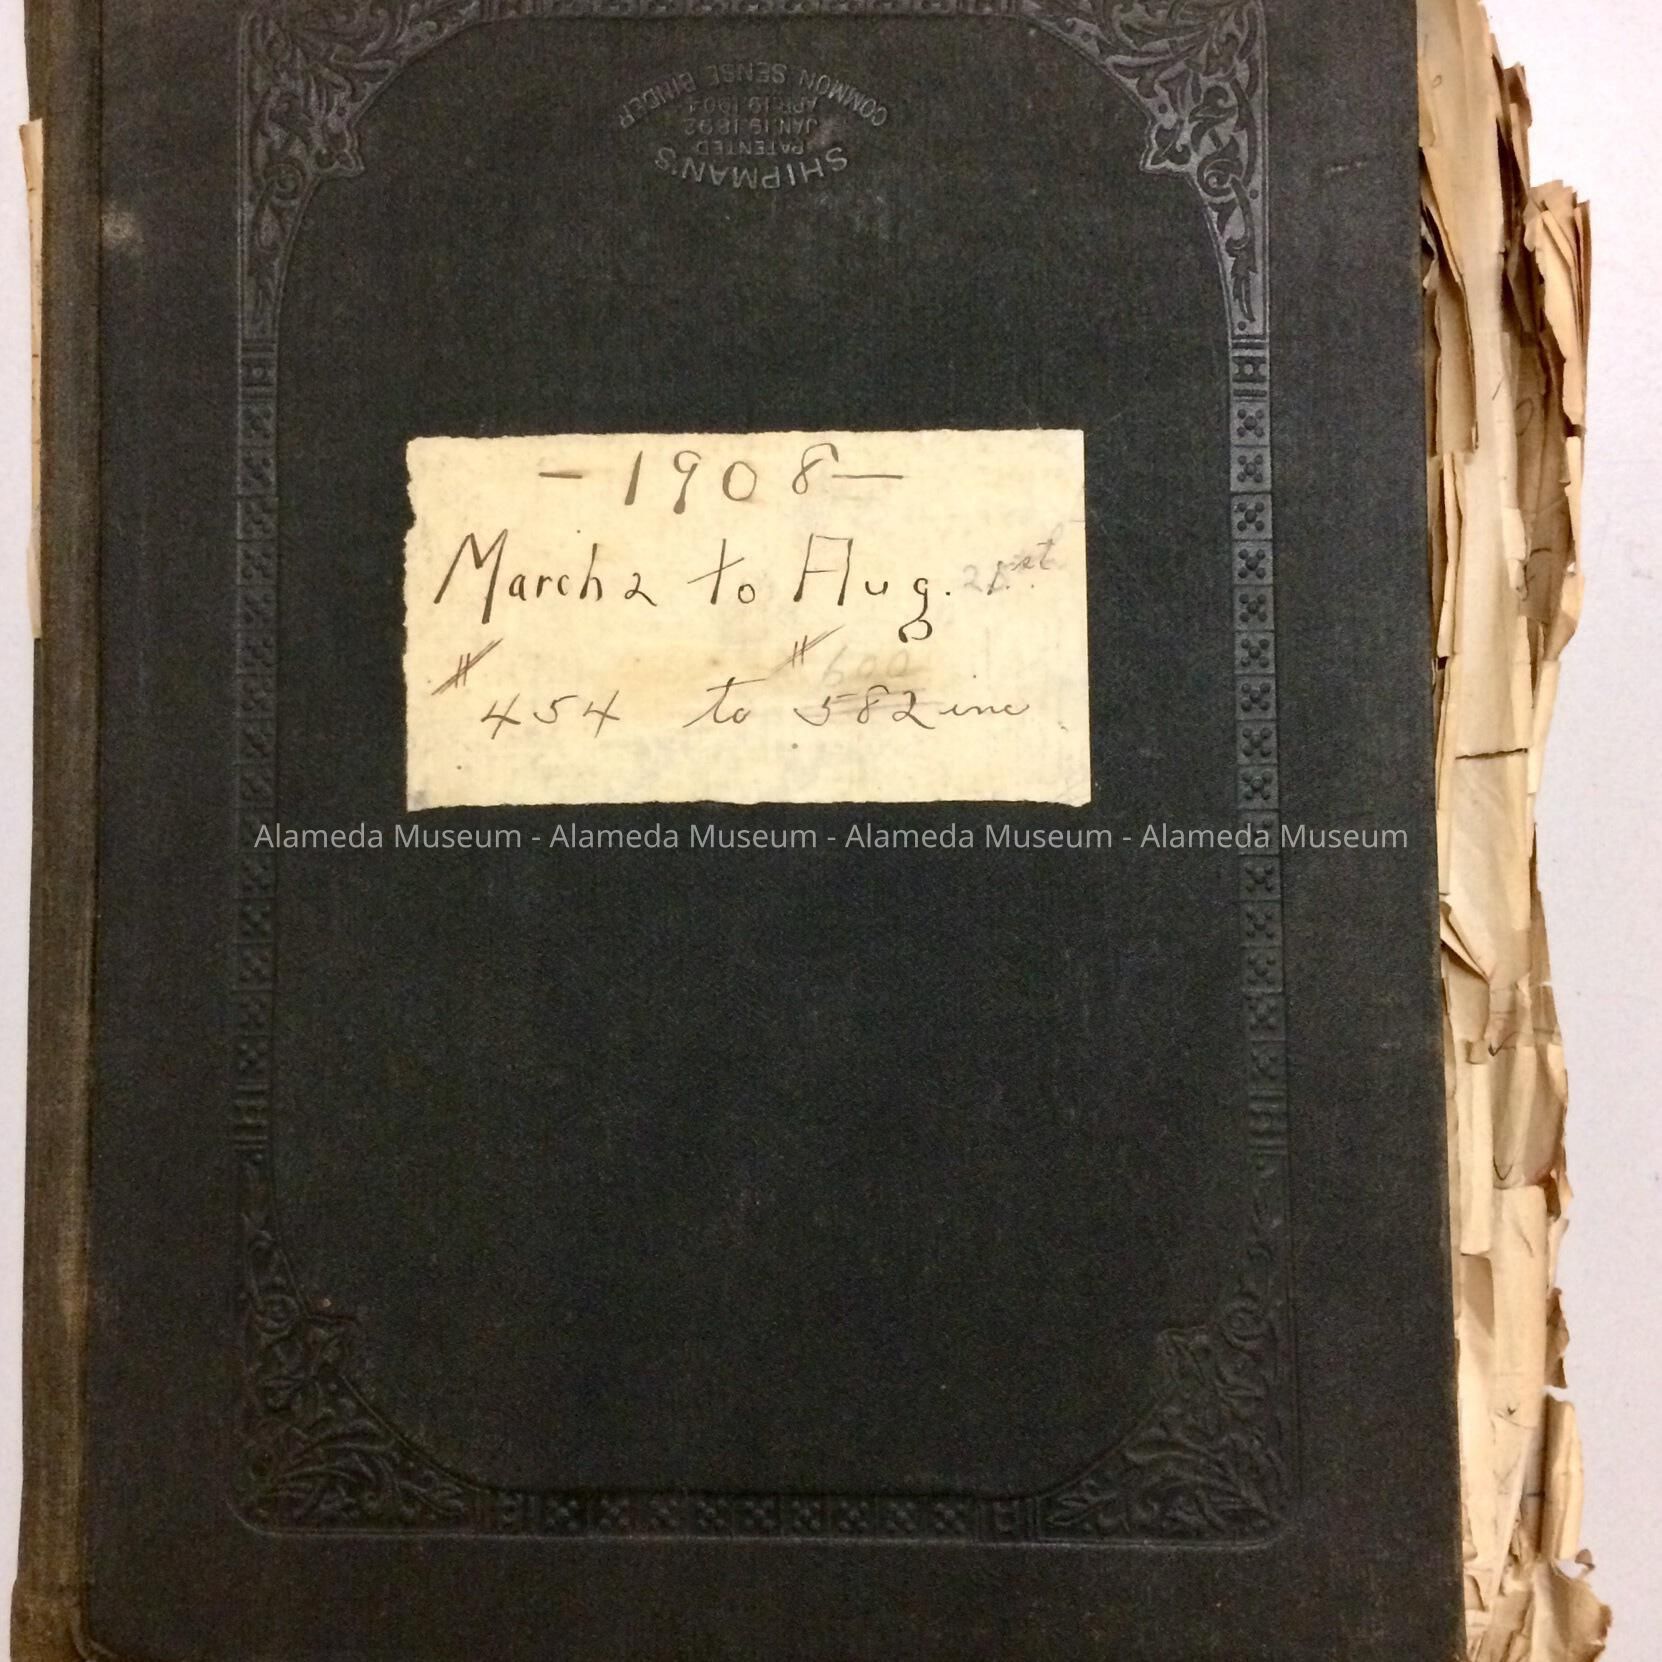 COMMON SENSE BINDER
APR.19.1904
JAN.19.1892
PATENTED
SHIPMAN'S
- 1908 -
March 2 to Aug. 21st.
# # 600
454 to 582 inc.
Alameda Museum - Alameda Museum - Alameda Museum - Alameda Museum